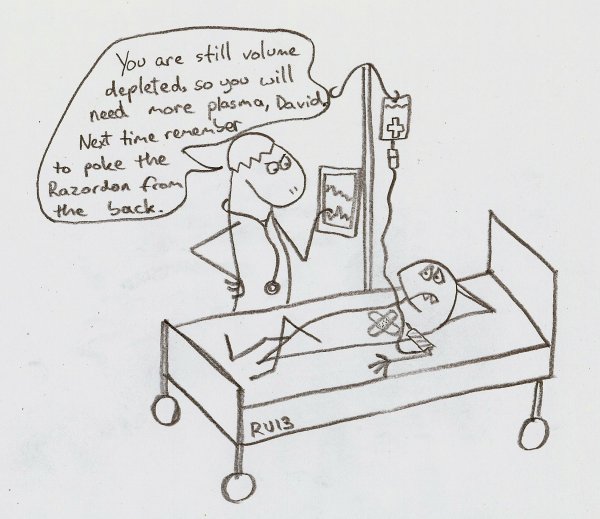 You are still volume
depleted, so you will
need more plasma, David.
Next time remember
to poke the
Razordon from
the back.
RU13